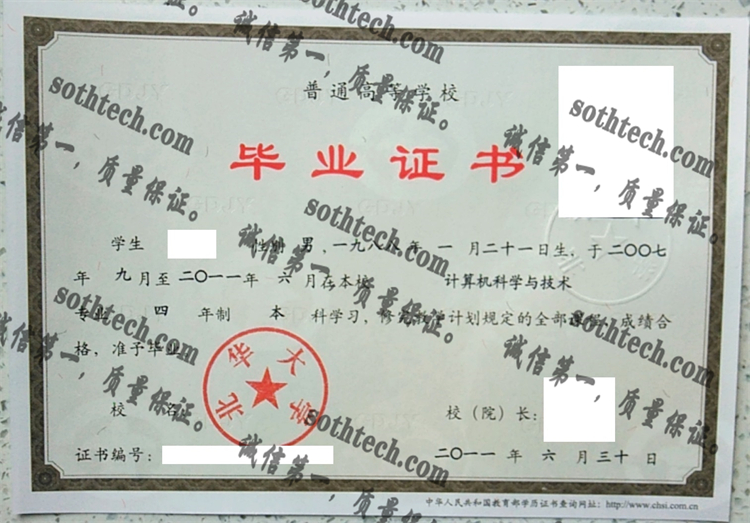 普通高等学校
毕业证书
学生 性别 男，一九八八年 一 月二十一日生，于二〇〇七
年 九月至二〇一一年 六 月在本校 计算机科学与技术
专业 四 年制 本 科学习，修完教学计划规定的全部课程，成绩合
格，准予毕业
校 名：
北华大学
校（院）长：
证书编号：
二〇一一 年 六 月三十日
中华人民共和国教育部学历证书查询网址：http://www.chsi.com.cn
sothtech.com
诚信第一，质量保证。
sothtech.com
诚信第一，质量保证。
sothtech.com
诚信第一，质量保证。
sothtech.com
诚信第一，质量保证。
sothtech.com
诚信第一，质量保证。
sothtech.com
诚信第一，质量保证。
sothtech.com
诚信第一，质量保证。
sothtech.com
诚信第一，质量保证。